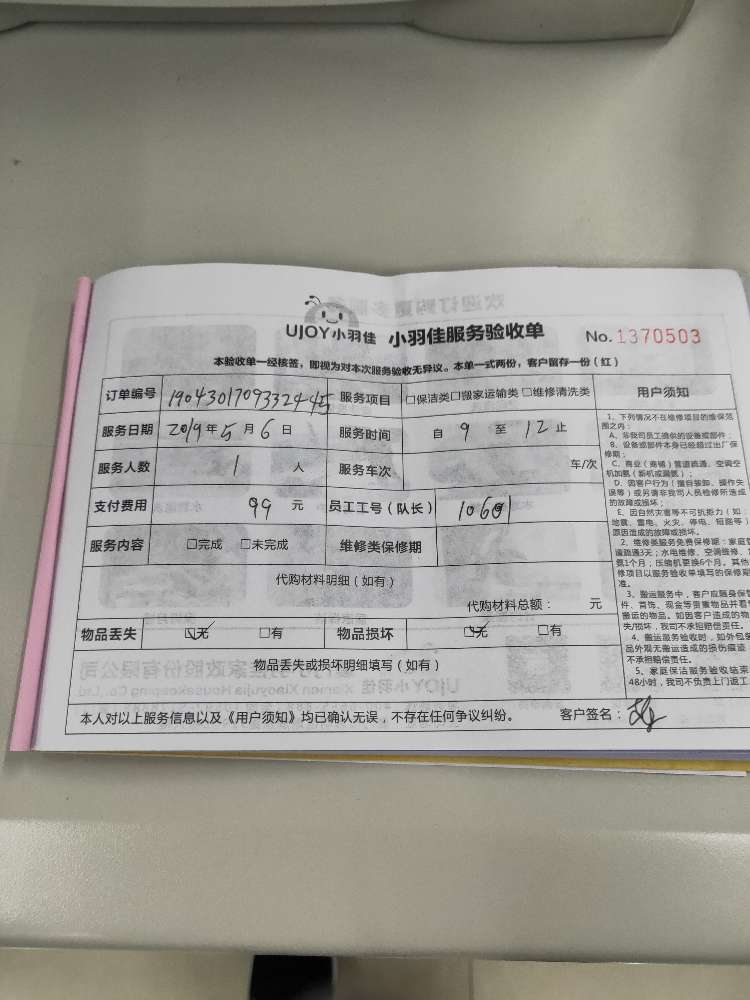 UJOY小羽佳 小羽佳服务验收单 No. 1370503
本验收单一经核签，即视为对本次服务验收无异议。本单一式两份，客户留存一份（红）
订单编号 190430170933244 服务项目 □保洁类□搬家运输类□维修清洗类
服务日期 2019年5月6日 服务时间 自 9 至 12 止
服务人数 1 人 服务车次 车/次
支付费用 99 元 员工工号（队长）
服务内容 □完成 □未完成 维修类保修期
代购材料明细（如有）
代购材料总额： 元
物品丢失 ☑无 □有 物品损坏 ☑无 □有
物品丢失或损坏明细填写（如有）
本人对以上服务信息以及《用户须知》均已确认无误，不存在任何争议纠纷。 客户签名：
用户须知
1、下列情况不在维修项目的维保范
围之内：
A、非我司员工提供的设备或部件；
B、设备或部件本身已经超过出厂保
修期；
C、商业（商铺）管道疏通、空调空
机加氨（新机或漏氨）；
D、因客户行为（擅自装卸、操作失
误等）或另请非我司人员检修所造成
的故障或损坏；
E、因自然灾害等不可抗拒力（如：
地震、雷电、火灾、停电、短路等）
原因造成的故障或损坏。
2、维修类服务免费保修期：家庭管
道疏通3天；水电维修、空调维修、
氨1个月；压缩机更换6个月。其他
修项目以服务验收单填写的保修期
准。
3、搬运服务中，客户应随身保管
件、首饰、现金等贵重物品并看管
搬运的物品。如因客户造成的物
失/损坏，我司不承担赔偿责任。
4、搬运服务验收时，如外包装
品外观无搬运造成的损伤痕迹
不承担赔偿责任。
5、家庭保洁服务验收结束
48小时，我司不负责上门返工